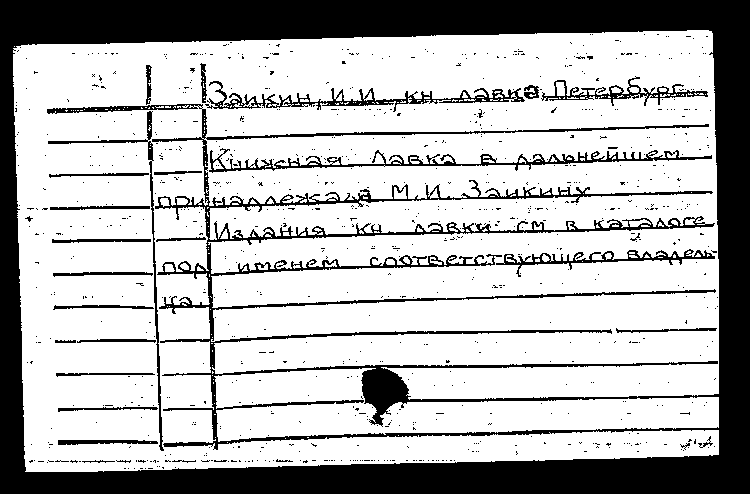 Заикин, И.И., кн. лавка, Петербург.
Книжная лавка в дальнейшем
принадлежала М.И. Заикину
Издания кн. лавки см. в каталоге
под именем соответствующего владель-
ца.